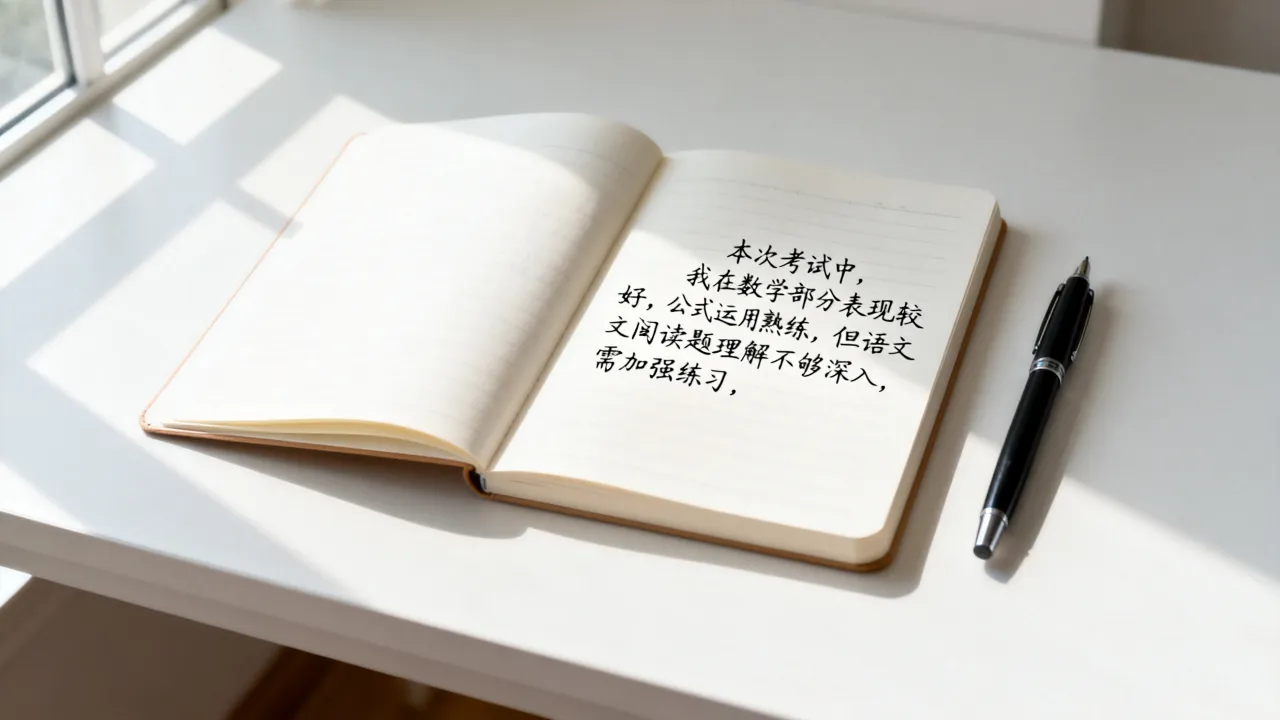 本次考试中，
我在数学部分表现较
好，公式运用熟练，但语文
文阅读题理解不够深入，
需加强练习，